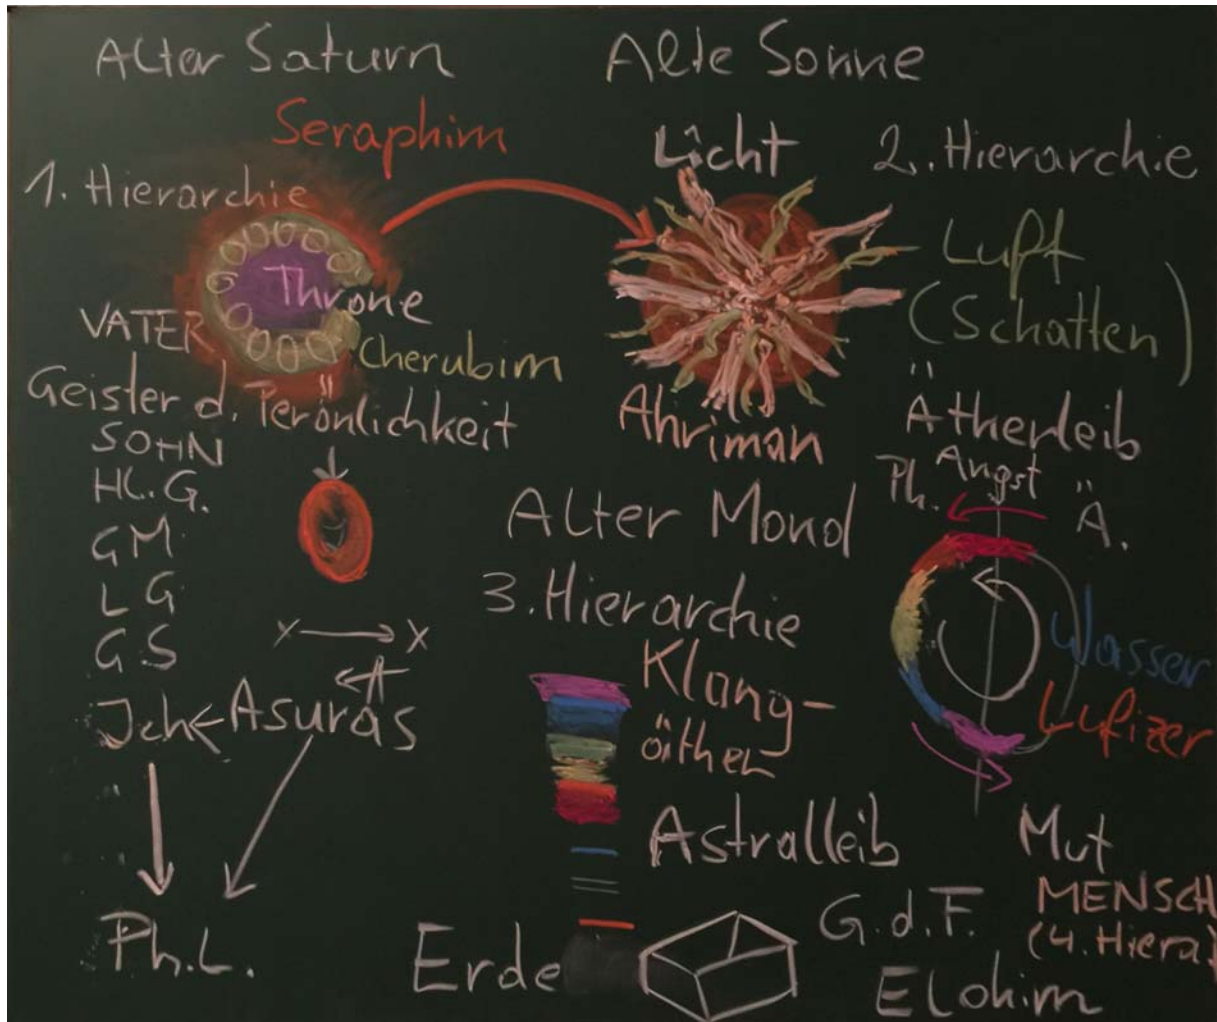 Alter Saturn
Seraphim
1. Hierarchie
Throne
VATER
Cherubim
Geister d. Perönlichkeit
SOHN
HL. G.
GM
LG
GS
X → X
Ich ← Asuras
Ph.L.
Alte Sonne
Licht
2. Hierarchie
Luft
(Schatten)
Ahriman
Ätherleib
Angst
Ph.
Ä.
Alter Mond
3. Hierarchie
Klang-
äther
Wasser
Lufizer
Astralleib
Mut
MENSCH
(4. Hiera)
G.d.F.
Erde
Elohim